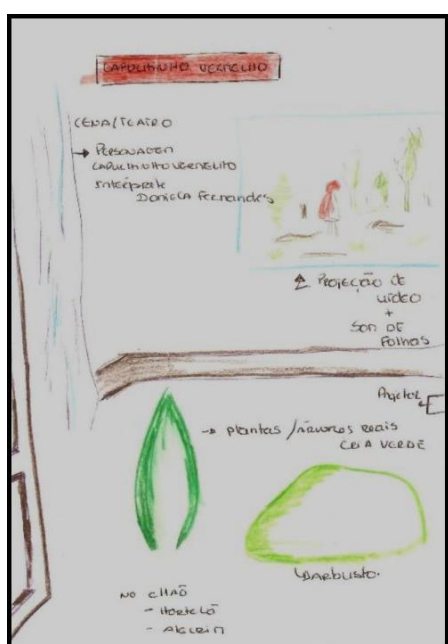 CAPULINHO VERMELHO
CENA/TEATRO
→ PERSONAGEM
CAPULINHO VERMELHO
Intérprete
DANIELA FERNANDES
PROJEÇÃO DE
VÍDEO
+
SOM DE
FOLHAS
Projetor
→ plantas / árvores reais
VERDE
ARBUSTO.
NO CHÃO
- HORTELÃ
- ALECRIM